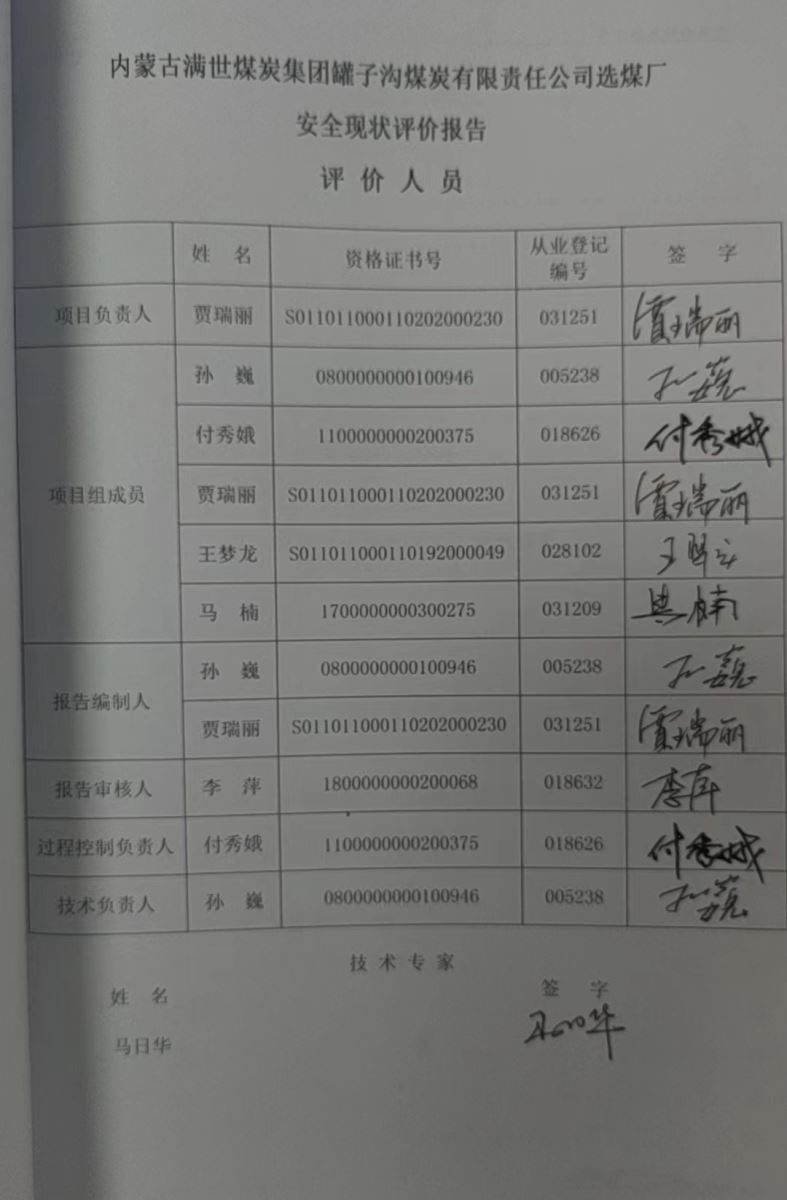 内蒙古满世煤炭集团罐子沟煤炭有限责任公司选煤厂
安全现状评价报告
评价人员
姓 名 资格证书号 从业登记编号 签 字
项目负责人 贾瑞丽 S011011000110202000230 031251 贾瑞丽
项目组成员 孙 巍 0800000000100946 005238 孙巍
付秀娥 1100000000200375 018626 付秀娥
贾瑞丽 S011011000110202000230 031251 贾瑞丽
王梦龙 S011011000110192000049 028102
马 楠 1700000000300275 031209 马楠
报告编制人 孙 巍 0800000000100946 005238 孙巍
贾瑞丽 S011011000110202000230 031251 贾瑞丽
报告审核人 李 萍 1800000000200068 018632 李萍
过程控制负责人 付秀娥 1100000000200375 018626 付秀娥
技术负责人 孙 巍 0800000000100946 005238 孙巍
技术专家
姓 名 签 字
马日华 马日华